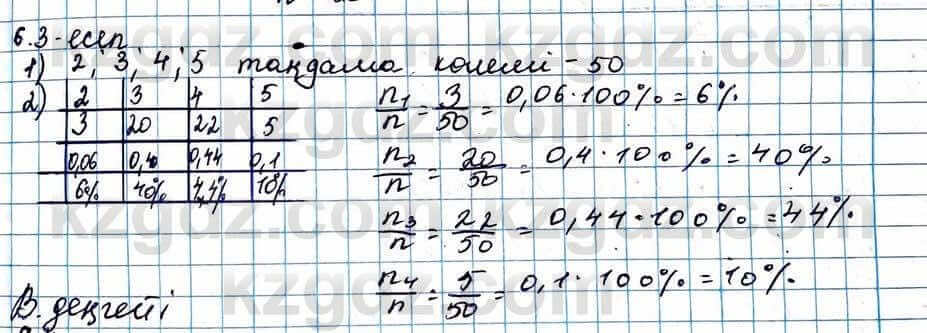 6.3-есеп
1) 2; 3; 4; 5 таңдама көлемі - 50
2) 2 3 4 5
3 20 22 5
0,06 0,40 0,44 0,1
6% 40% 4,4% 10%
n₁/n = 3/50 = 0,06·100% = 6%
n₂/n = 20/50 = 0,4·100% = 40%
n₃/n = 22/50 = 0,44·100% = 44%
n₄/n = 5/50 = 0,1·100% = 10%
В. деңгейі
kzgdz.com